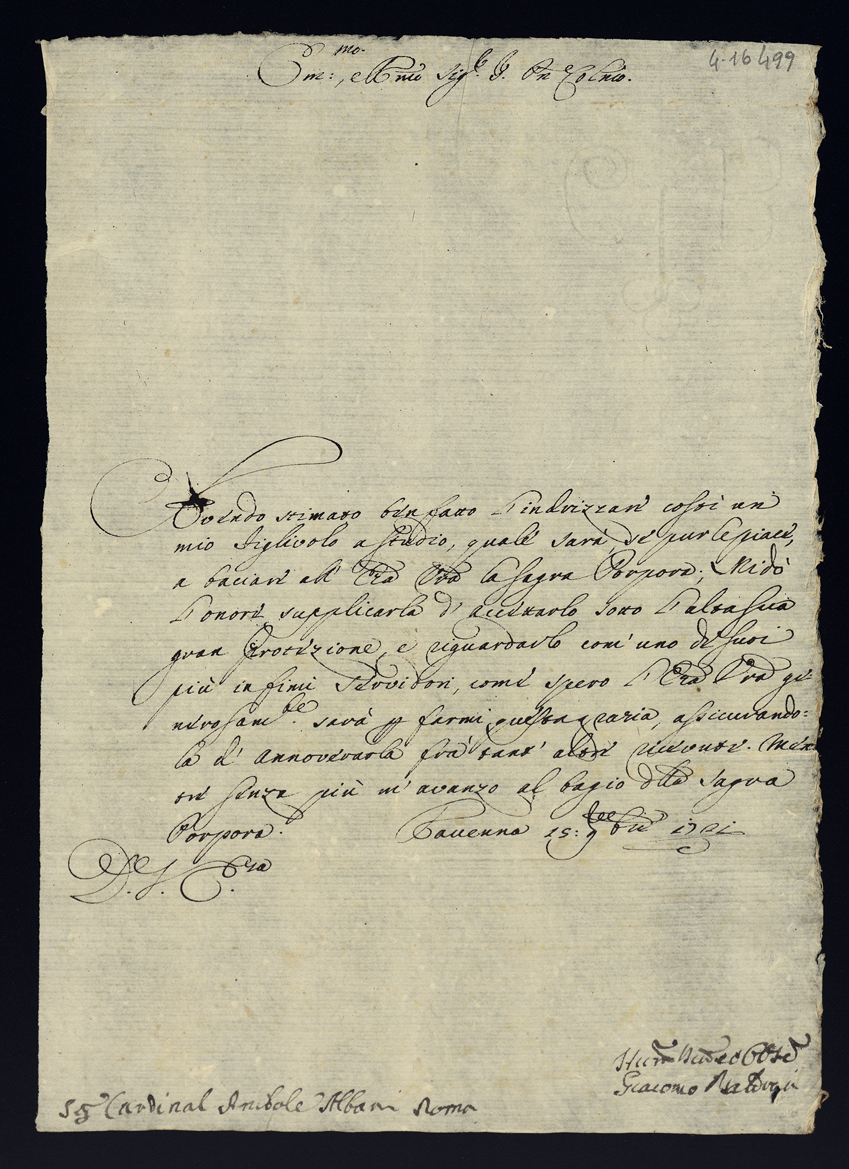 4-16 499
Em:mo, e Rmo Sigre
Avendo stimato ben fatto l'indrizzare costì un
mio figlivolo a studio, quale sarà, se pur le piace,
a baciare all' Eza Vra la sagra Porpora;
l'onore supplicarla d' accettarlo sotto l'alta sua
gran Protezione, e riguardarlo com' uno de suoi
più infimi servidori, come spero l'Eza Vra ge-
nerosamte sarà p farmi questa grazia, assicurando=
la d' annoverarla frà tant' altre ricevute. Men
tre senza più m' avanzo al bagio dlla sagra
Porpora. Ravenna 15: 9bre 1721
D. V. Eza
Giacomo
Sigr Cardinal Anibale Albani Roma